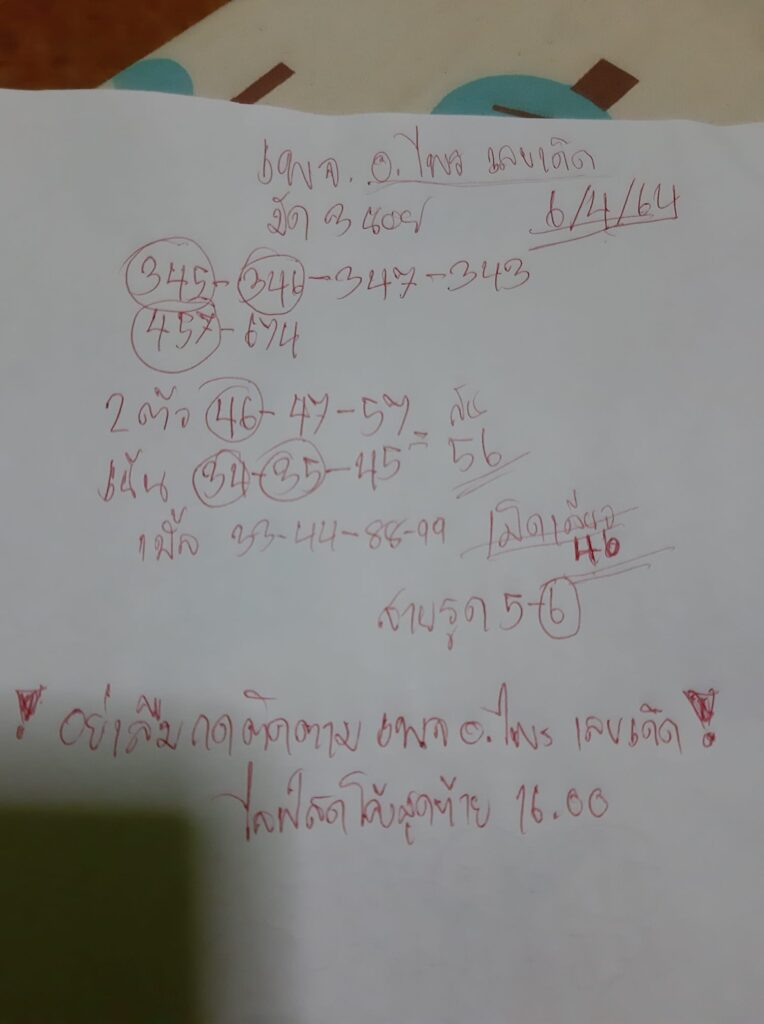 เพจ. อ.ไพร เลขเด็ด
มัด 3 ฮานอย 6/4/64
345-346-347-343
457-674
2 ตัว 46-47-57 =
เน้น 34-35-45 56
เบิ้ล 33-44-88-99 เม็ดเดียว
46
สายรูด 5-6
อย่าลืม กดติดตาม เพจ อ.ไพร เลขเด็ด!
ไลฟ์สดโค้งสุดท้าย 16.00